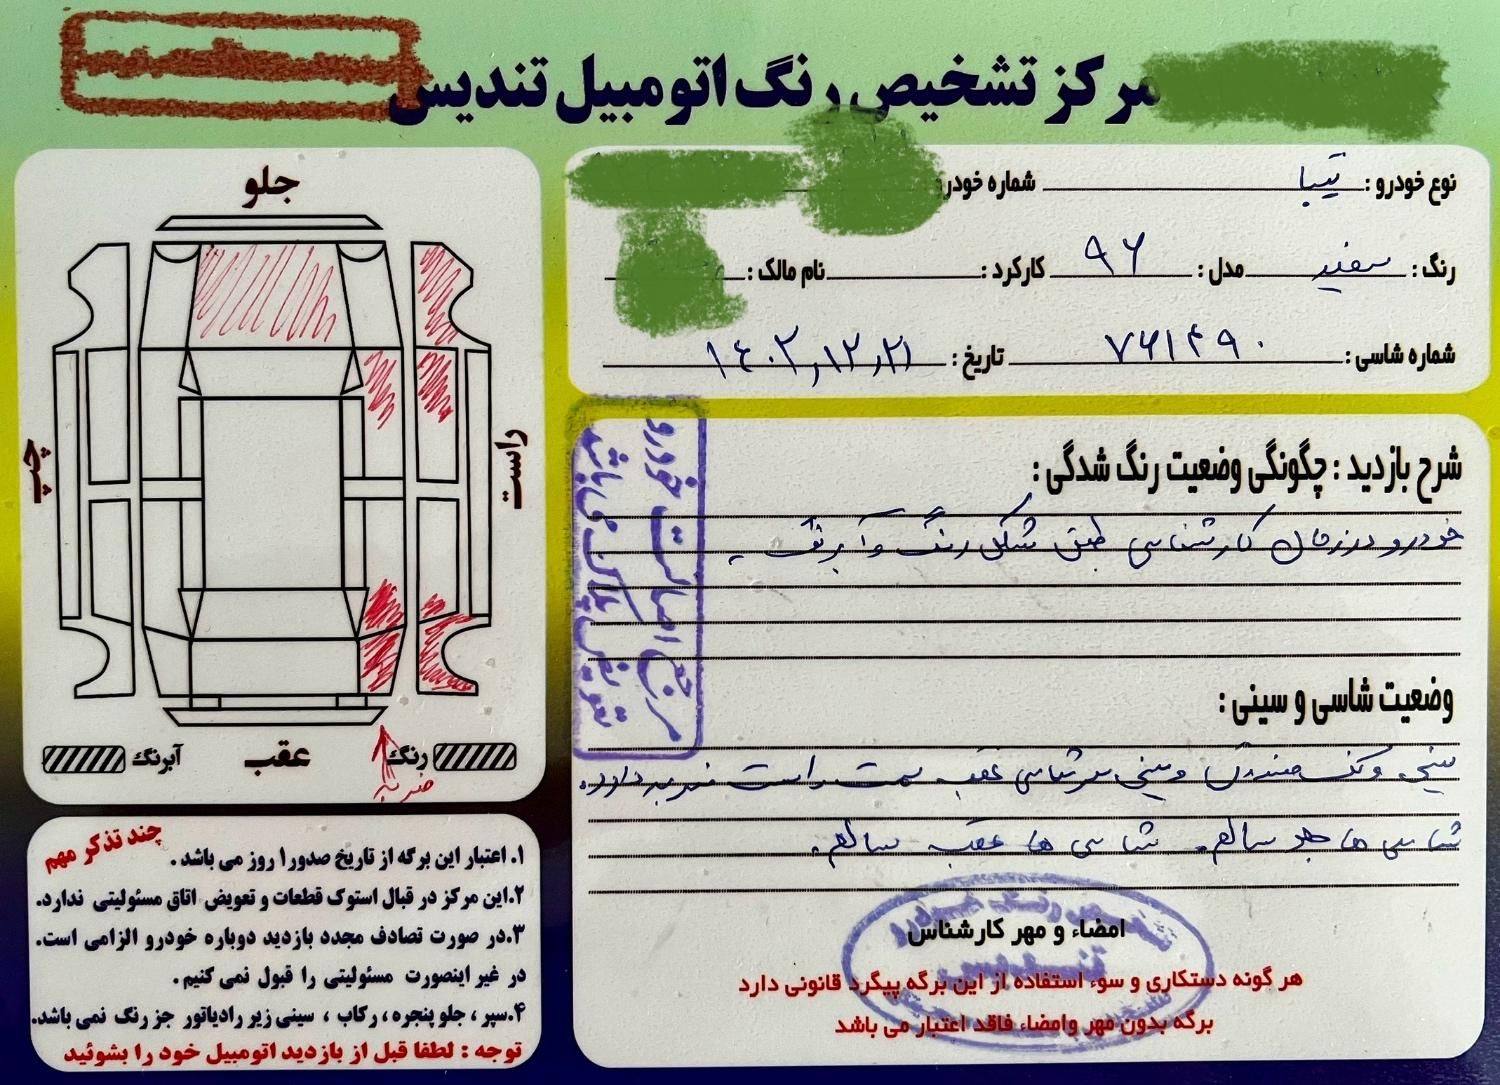 مرکز تشخیص رنگ اتومبیل تندیس
نوع خودرو : تیبا شماره خودرو
رنگ : سفید مدل : ۹۶ کارکرد : نام مالک :
شماره شاسی : ۷۶۱۴۹۰ تاریخ : ۱۴۰۲٫۱۲٫۲۱
جلو
چپ
راست
عقب
رنگ
آبرنگ
ضربه
شرح بازدید : چگونگی وضعیت رنگ شدگی :
خودرو در زمان کارشناسی طبق شکل رنگ و آبرنگ .
وضعیت شاسی و سینی :
سینی و کف صندوق و سینی سرشاسی عقب سمت راست ضربه دارد.
شاسی ها جلو سالم. شاسی ها عقب سالم.
مرجع اصالت خودرو
تعویض پلاک می باشد
امضاء و مهر کارشناس
هر گونه دستکاری و سوء استفاده از این برگه پیگرد قانونی دارد
برگه بدون مهر وامضاء فاقد اعتبار می باشد
چند تذکر مهم
۱. اعتبار این برگه از تاریخ صدور ۱ روز می باشد .
۲.این مرکز در قبال استوک قطعات و تعویض اتاق مسئولیتی ندارد.
۳.در صورت تصادف مجدد بازدید دوباره خودرو الزامی است.
در غیر اینصورت مسئولیتی را قبول نمی کنیم .
۴.سپر ، جلو پنجره ، رکاب ، سینی زیر رادیاتور جز رنگ نمی باشد.
توجه : لطفا قبل از بازدید اتومبیل خود را بشوئید